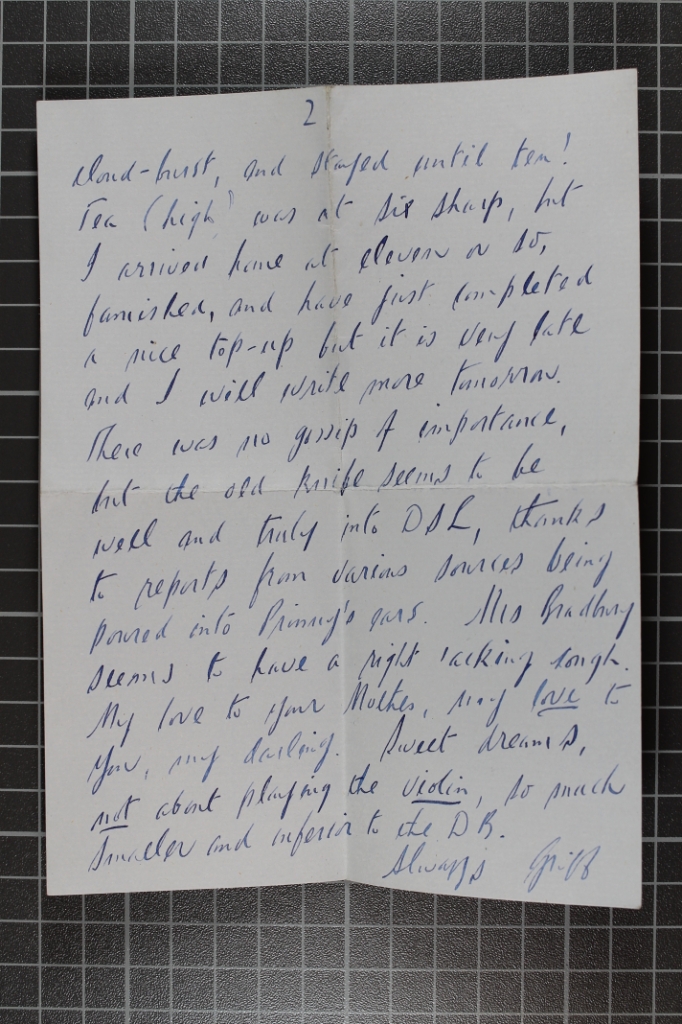 2
cloud-burst, and stayed until ten!
Tea (high) was at six sharp, but
I arrived home at eleven or so,
famished, and have just completed
a nice top-up but it is very late
and I will write more tomorrow.
There was no gossip of importance,
but the old knife seems to be
well and truly into DSL, thanks
to reports from various sources being
poured into Prinny's ears. Mrs Bradbury
seems to have a right 'acking cough.
My love to your Mother, my love to
you, my darling. Sweet dreams,
not about playing the violin, so much
smaller and inferior to the DB.
Always Griff